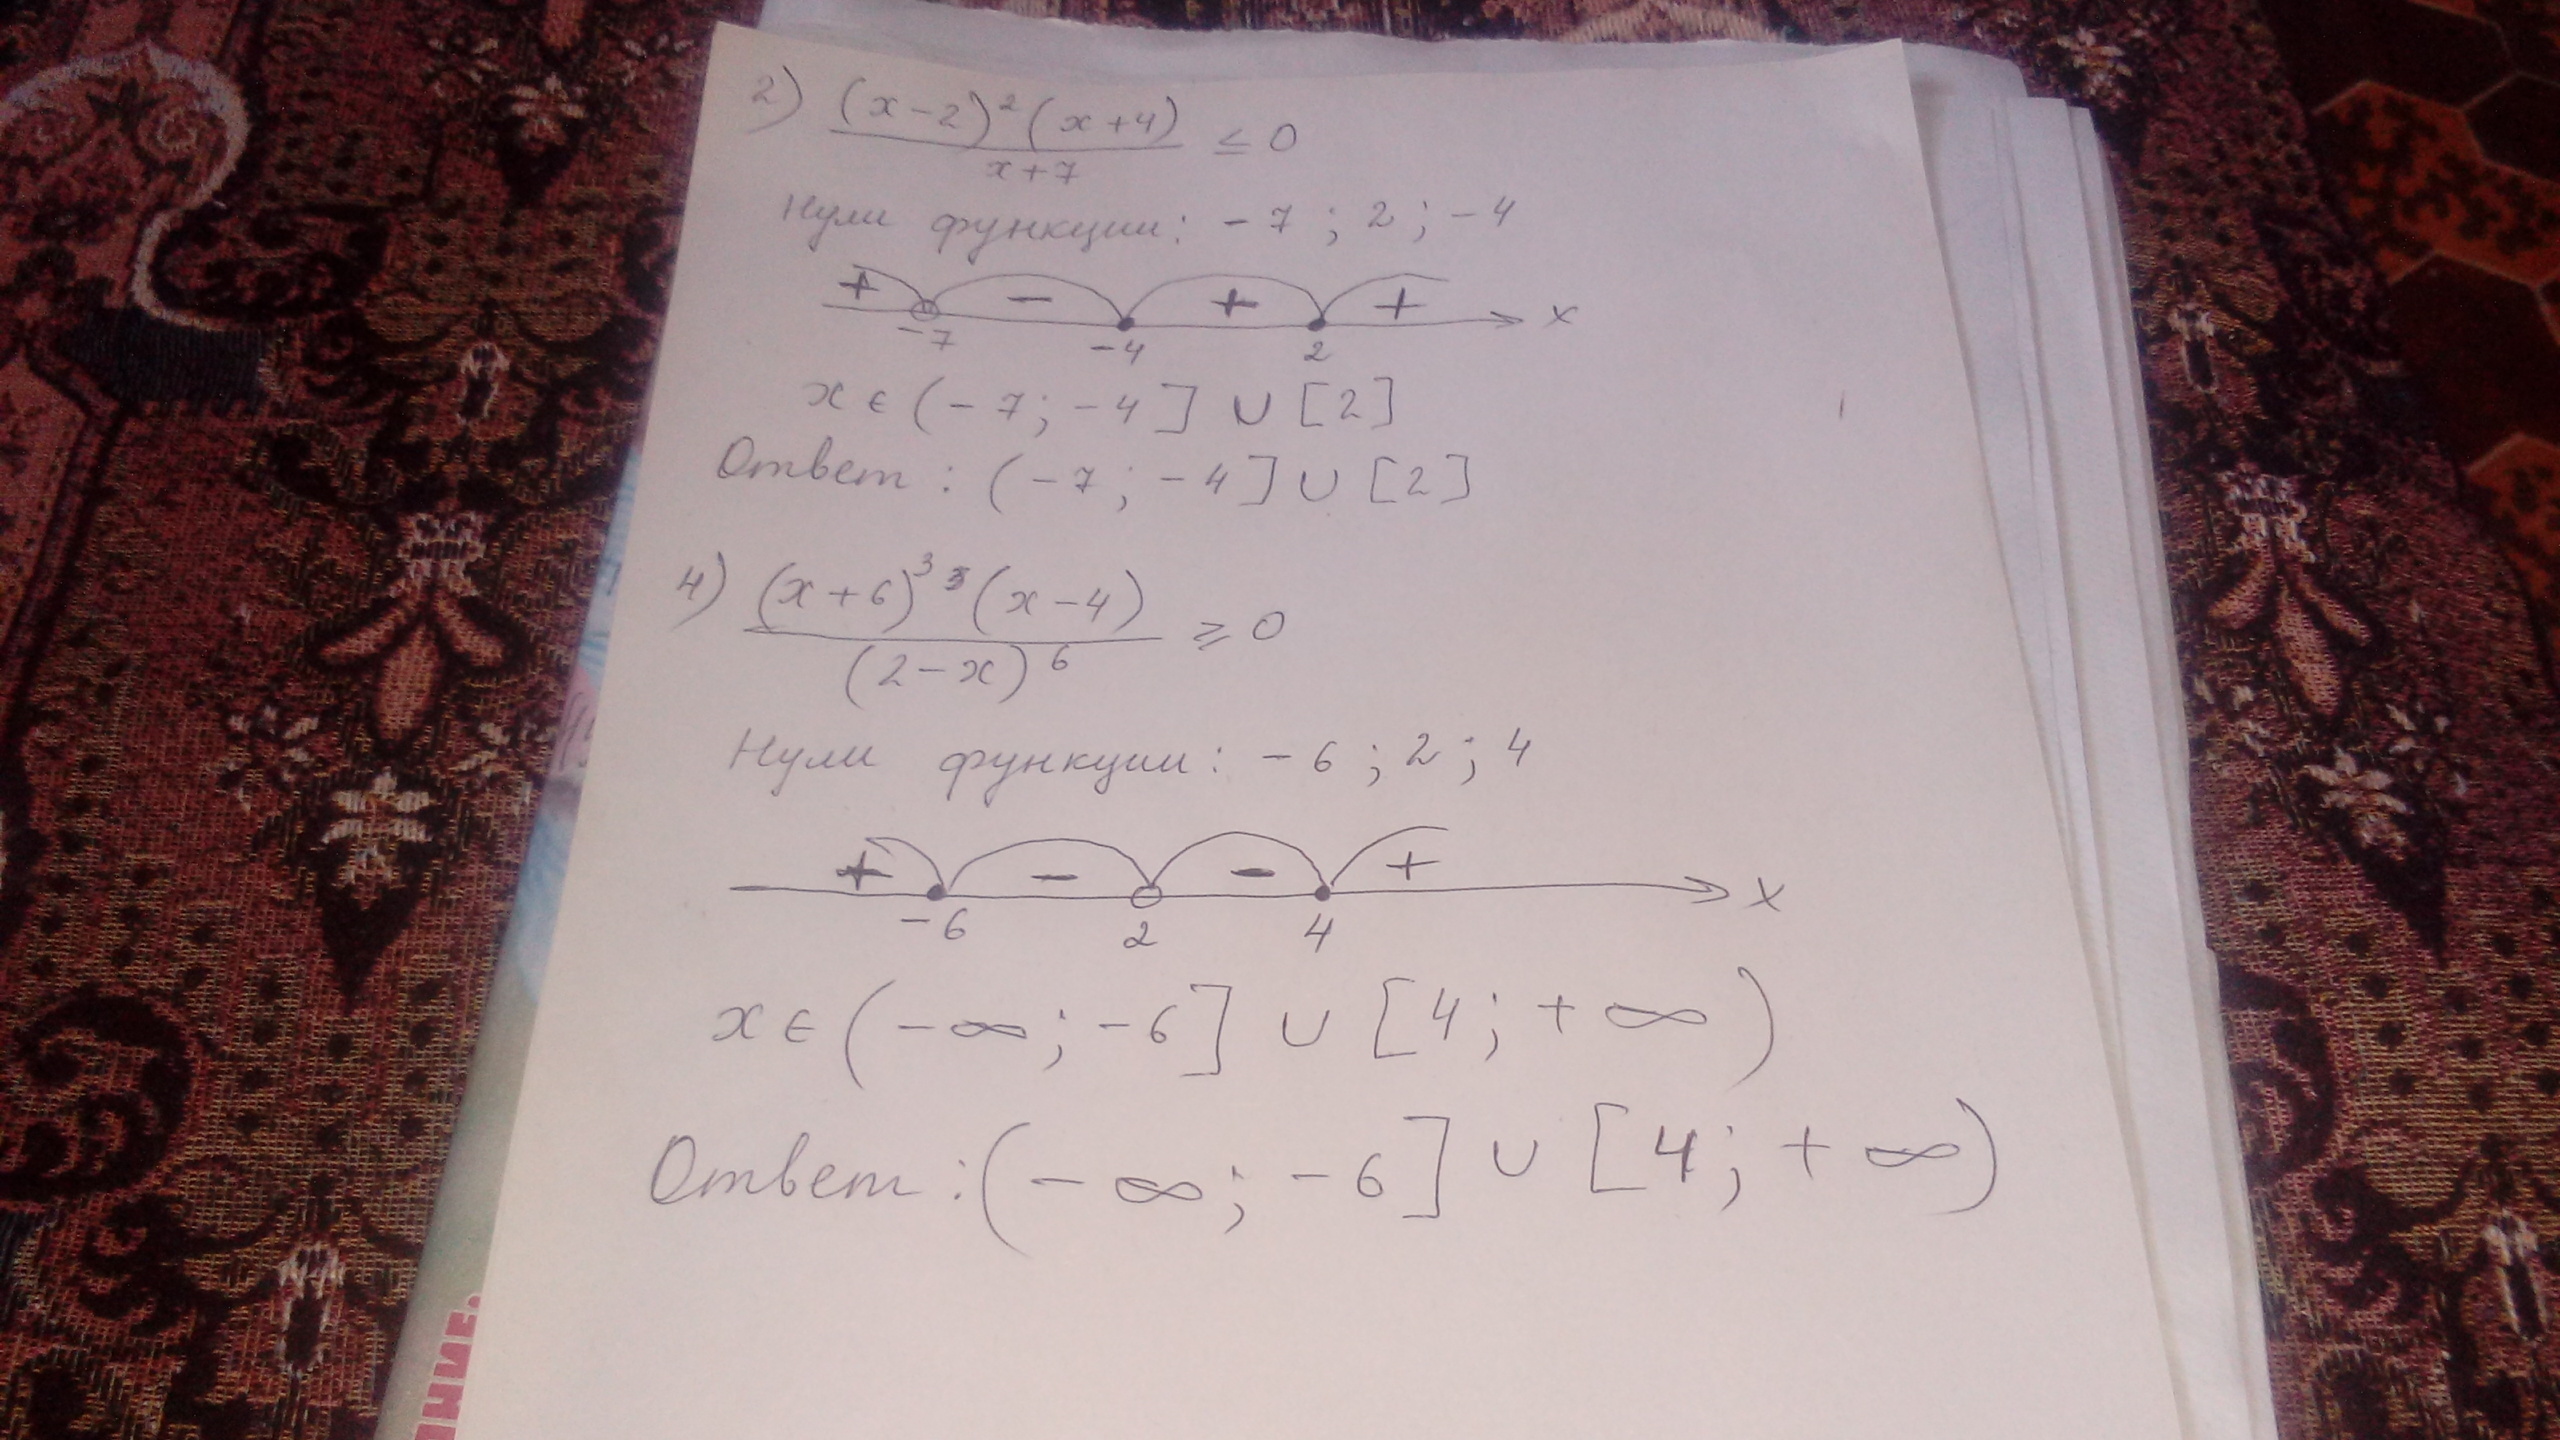 2) (x-2)²(x+4) / x+7 ≤ 0
Нули функции: -7; 2; -4
+ - + + x
-7 -4 2
x ∈ (-7; -4] ∪ [2]
Ответ: (-7; -4] ∪ [2]
4) (x+6)³ (x-4) / (2-x)⁶ ≥ 0
Нули функции: -6; 2; 4
+ - - + x
-6 2 4
x ∈ (-∞; -6] ∪ [4; +∞)
Ответ: (-∞; -6] ∪ [4; +∞)
НИЕ.